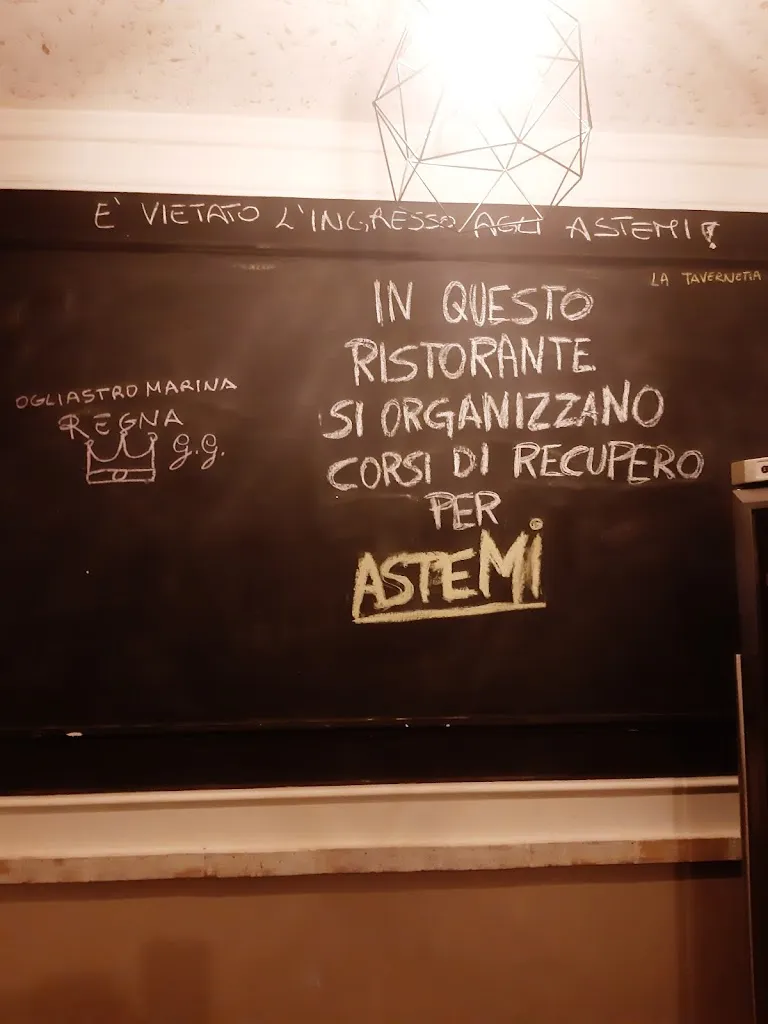 E' VIETATO L'INGRESSO AGLI ASTEMI!
LA TAVERNETTA
IN QUESTO
RISTORANTE
SI ORGANIZZANO
CORSI DI RECUPERO
PER
ASTEMi
OGLIASTRO MARINA
REGNA
G.G.